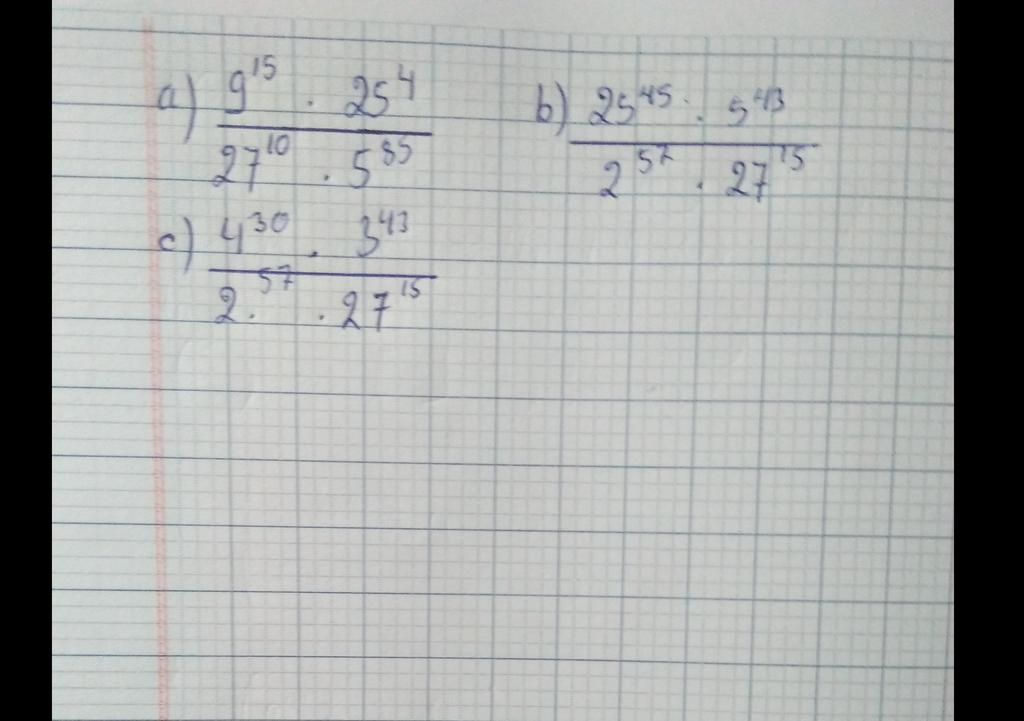 a) 9^15 · 25^4 / 27^10 · 5^85 b) 25^45 · 5^43 / 2^57 · 27^15
c) 4^30 · 3^43 / 2^57 · 27^15